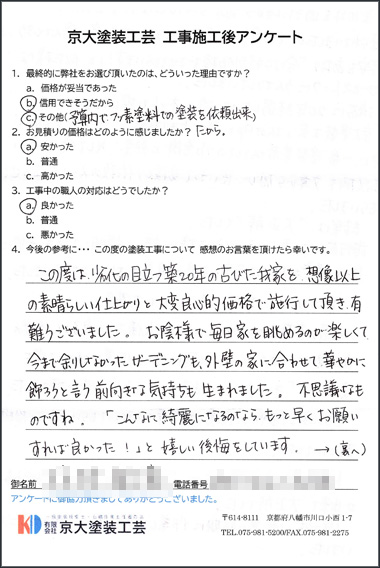 京大塗装工芸 工事施工後アンケート
1. 最終的に弊社をお選び頂いたのは、どういった理由ですか?
a. 価格が妥当であった
b. 信用できそうだから
c. その他(予算内でフッ素塗料での塗装を依頼出来)
たから。
2. お見積りの価格はどのように感じましたか?
a. 安かった
b. 普通
c. 高かった
3. 工事中の職人の対応はどうでしたか?
a. 良かった
b. 普通
c. 悪かった
4. 今後の参考に・・・ この度の塗装工事について 感想のお言葉を頂ければ幸いです。
この度は、劣化の目立つ築20年の古びた我家を、想像以上
の素晴らしい仕上がりと大変良心的価格で施行して頂き、有
難うございました。 お陰様で毎日家を眺めるのが楽しくて
今まで余りしなかったガーデニングも、外壁の家に合わせて華やかに
飾ろうと言う前向きな気持ちも生まれました。 不思議なも
のですね。 「こんなに綺麗になるのなら、もっと早くお願い
すれば良かった!」と嬉しい後悔をしています。 →(裏へ)
御名前 電話番号
アンケートに御協力頂きましてありがとうございました。
KD 有限会社 京大塗装工芸
〒614-8111 京都府八幡市川口小西1-7
TEL.075-981-5200/FAX.075-981-2275